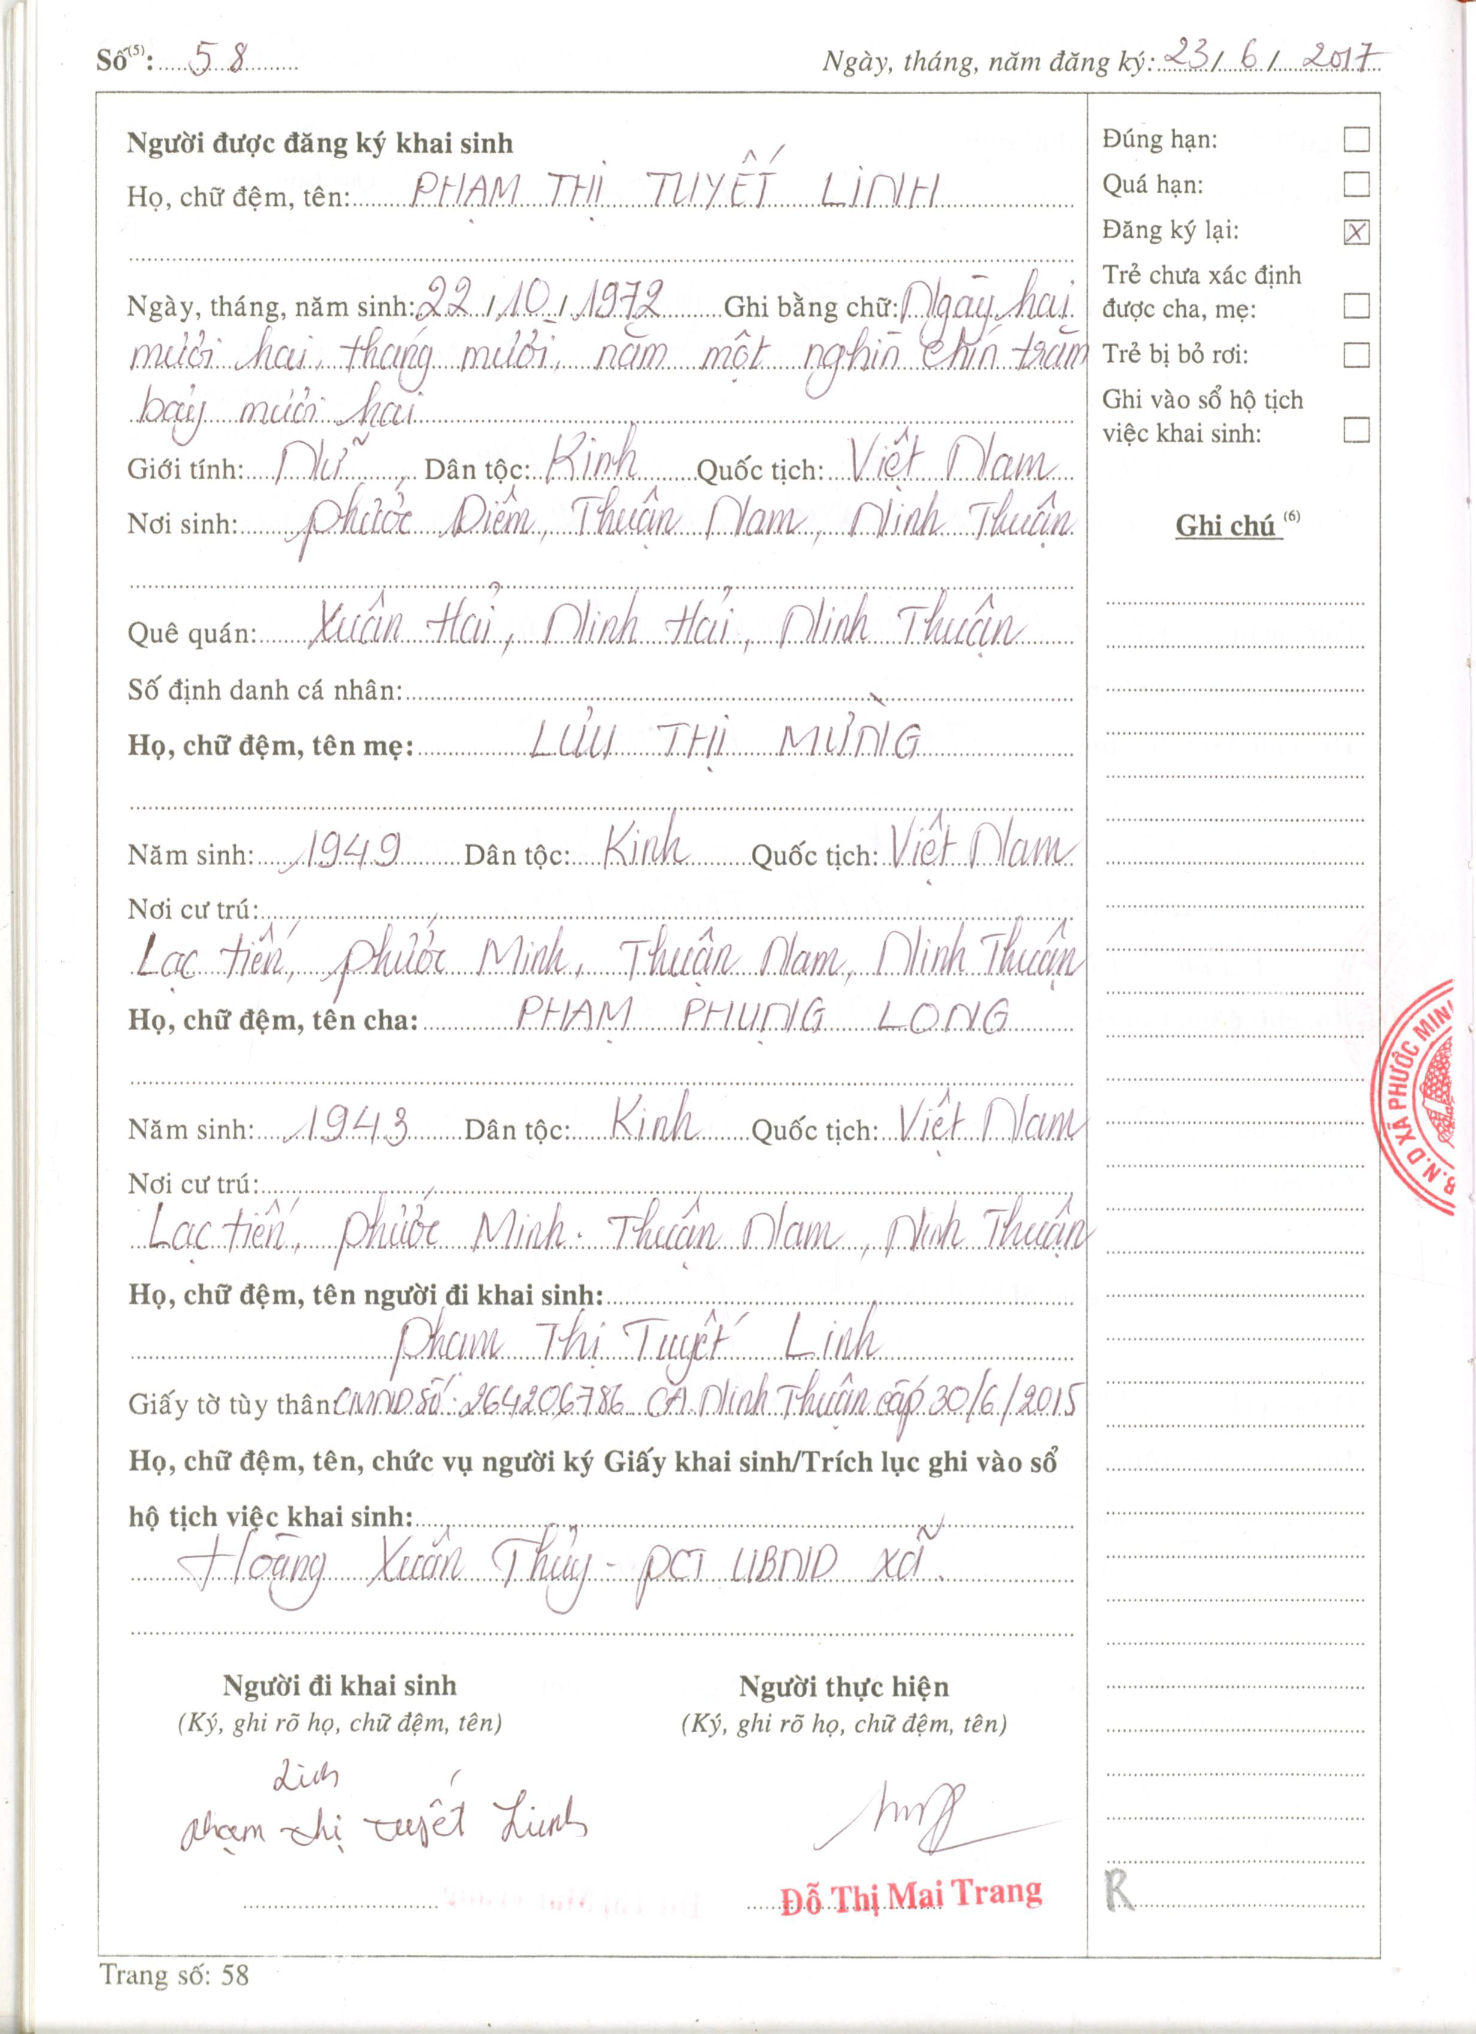 Số⁽⁵⁾: 58
Ngày, tháng, năm đăng ký: 23/ 6 / 2017
Người được đăng ký khai sinh
Họ, chữ đệm, tên: PHẠM THỊ TUYẾT LINH
Ngày, tháng, năm sinh: 22 / 10 / 1972 Ghi bằng chữ: Ngày hai
mươi hai, tháng mười, năm một nghìn chín trăm
bảy mươi hai
Giới tính: Nữ, Dân tộc: Kinh Quốc tịch: Việt Nam
Nơi sinh: Phước Diêm, Thuận Nam, Ninh Thuận
Quê quán: Xuân Hải, Ninh Hải, Ninh Thuận
Số định danh cá nhân:
Họ, chữ đệm, tên mẹ: LƯU THỊ MỪNG
Năm sinh: 1949 Dân tộc: Kinh Quốc tịch: Việt Nam
Nơi cư trú:
Lạc tiến, Phước Minh, Thuận Nam, Ninh Thuận
Họ, chữ đệm, tên cha: PHẠM PHỤNG LONG
Năm sinh: 1943 Dân tộc: Kinh Quốc tịch: Việt Nam
Nơi cư trú:
Lạc tiến, Phước Minh. Thuận Nam, Ninh Thuận
Họ, chữ đệm, tên người đi khai sinh:
Phạm Thị Tuyết Linh
Giấy tờ tùy thân: CMND số: 264206786 CA Ninh Thuận cấp 30/6/2015
Họ, chữ đệm, tên, chức vụ người ký Giấy khai sinh/Trích lục ghi vào sổ
hộ tịch việc khai sinh:
Hoàng Xuân Thủy - PCT UBND xã.
Người đi khai sinh
(Ký, ghi rõ họ, chữ đệm, tên)
Linh
Phạm Thị Tuyết Linh
Người thực hiện
(Ký, ghi rõ họ, chữ đệm, tên)
Đỗ Thị Mai Trang
Đúng hạn: ☐
Quá hạn: ☐
Đăng ký lại: ☒
Trẻ chưa xác định
được cha, mẹ: ☐
Trẻ bị bỏ rơi: ☐
Ghi vào sổ hộ tịch
việc khai sinh: ☐
Ghi chú ⁽⁶⁾
B.N.D XÃ PHƯỚC MINH
R
Trang số: 58